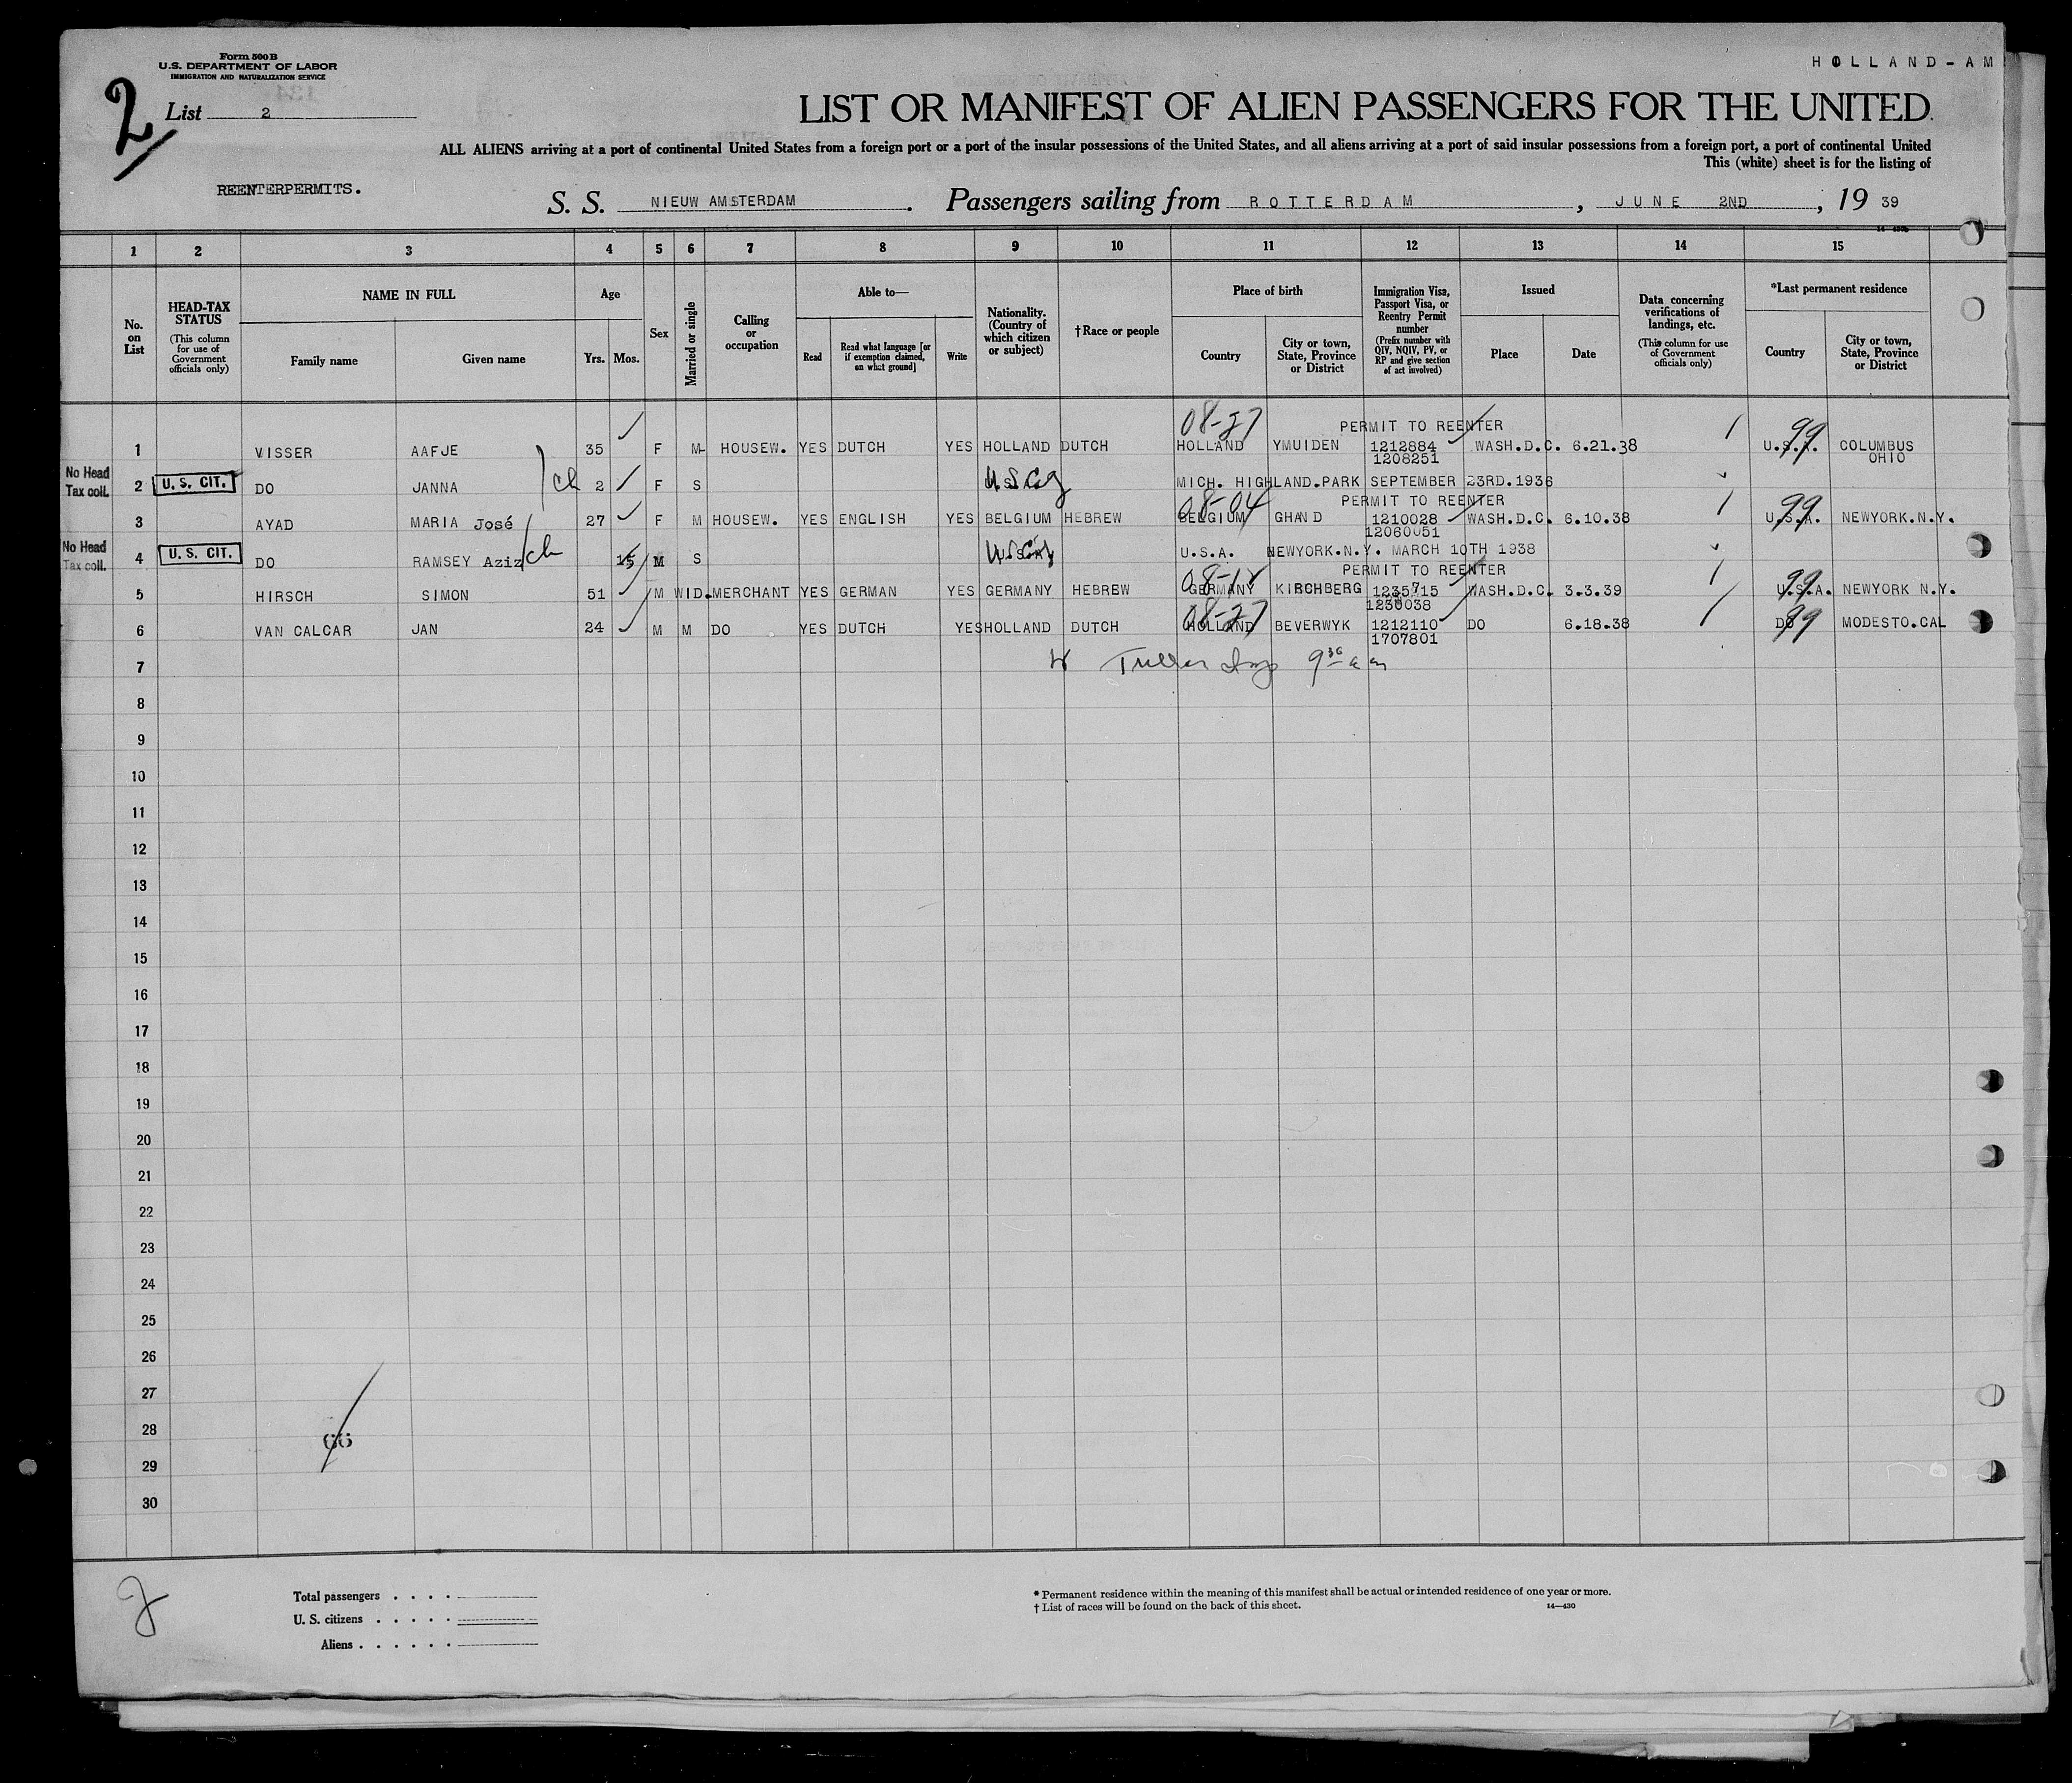 Form 500 B
U.S. DEPARTMENT OF LABOR
IMMIGRATION AND NATURALIZATION SERVICE
HOLLAND-AM
2
List 2
LIST OR MANIFEST OF ALIEN PASSENGERS FOR THE UNITED
ALL ALIENS arriving at a port of continental United States from a foreign port or a port of the insular possessions of the United States, and all aliens arriving at a port of said insular possessions from a foreign port, a port of continental United
This (white) sheet is for the listing of
REENTERPERMITS.
S. S. NIEUW AMSTERDAM. Passengers sailing from ROTTERDAM, JUNE 2ND, 19 39
1 2 3 4 5 6 7 8 9 10 11 12 13 14 15
No. on List
HEAD-TAX STATUS (This column for use of Government officials only)
NAME IN FULL
Family name Given name
Age
Yrs. Mos.
Sex
Married or single
Calling or occupation
Able to—
Read Read what language [or if exemption claimed, on what ground] Write
Nationality. (Country of which citizen or subject)
†Race or people
Place of birth
Country City or town, State, Province or District
Immigration Visa, Passport Visa, or Reentry Permit number (Prefix number with QIV, NQIV, PV, or RP and give section of act involved)
Issued
Place Date
Data concerning verifications of landings, etc. (This column for use of Government officials only)
*Last permanent residence
Country City or town, State, Province or District
08-27 PERMIT TO REENTER
1 VISSER AAFJE 35 F M HOUSEW. YES DUTCH YES HOLLAND DUTCH HOLLAND YMUIDEN 1212884 WASH.D.C. 6.21.38 U.S.A. 99 COLUMBUS
1208251 OHIO
No Head Tax coll. 2 U. S. CIT. DO JANNA ch 2 F S MICH. HIGHLAND.PARK SEPTEMBER 23RD.1936
08-04 PERMIT TO REENTER
3 AYAD MARIA José 27 F M HOUSEW. YES ENGLISH YES BELGIUM HEBREW BELGIUM GHAND 1210028 WASH.D.C. 6.10.38 U.S.A. 99 NEWYORK.N.Y.
12060051
No Head Tax coll. 4 U. S. CIT. DO RAMSEY Aziz ch 15 M S U.S.A. NEWYORK.N.Y. MARCH 10TH 1938
PERMIT TO REENTER
5 HIRSCH SIMON 51 M WID. MERCHANT YES GERMAN YES GERMANY HEBREW GERMANY KIRCHBERG 1235715 WASH.D.C. 3.3.39 U.S.A. 99 NEWYORK N.Y.
1230038
08-27
6 VAN CALCAR JAN 24 M M DO YES DUTCH YES HOLLAND DUTCH HOLLAND BEVERWYK 1212110 DO 6.18.38 DO 99 MODESTO.CAL
1707801
7
8
9
10
11
12
13
14
15
16
17
18
19
20
21
22
23
24
25
26
27
28
66
29
30
Total passengers . . . .
U. S. citizens . . . . .
Aliens . . . . . .
* Permanent residence within the meaning of this manifest shall be actual or intended residence of one year or more.
† List of races will be found on the back of this sheet.
14—430